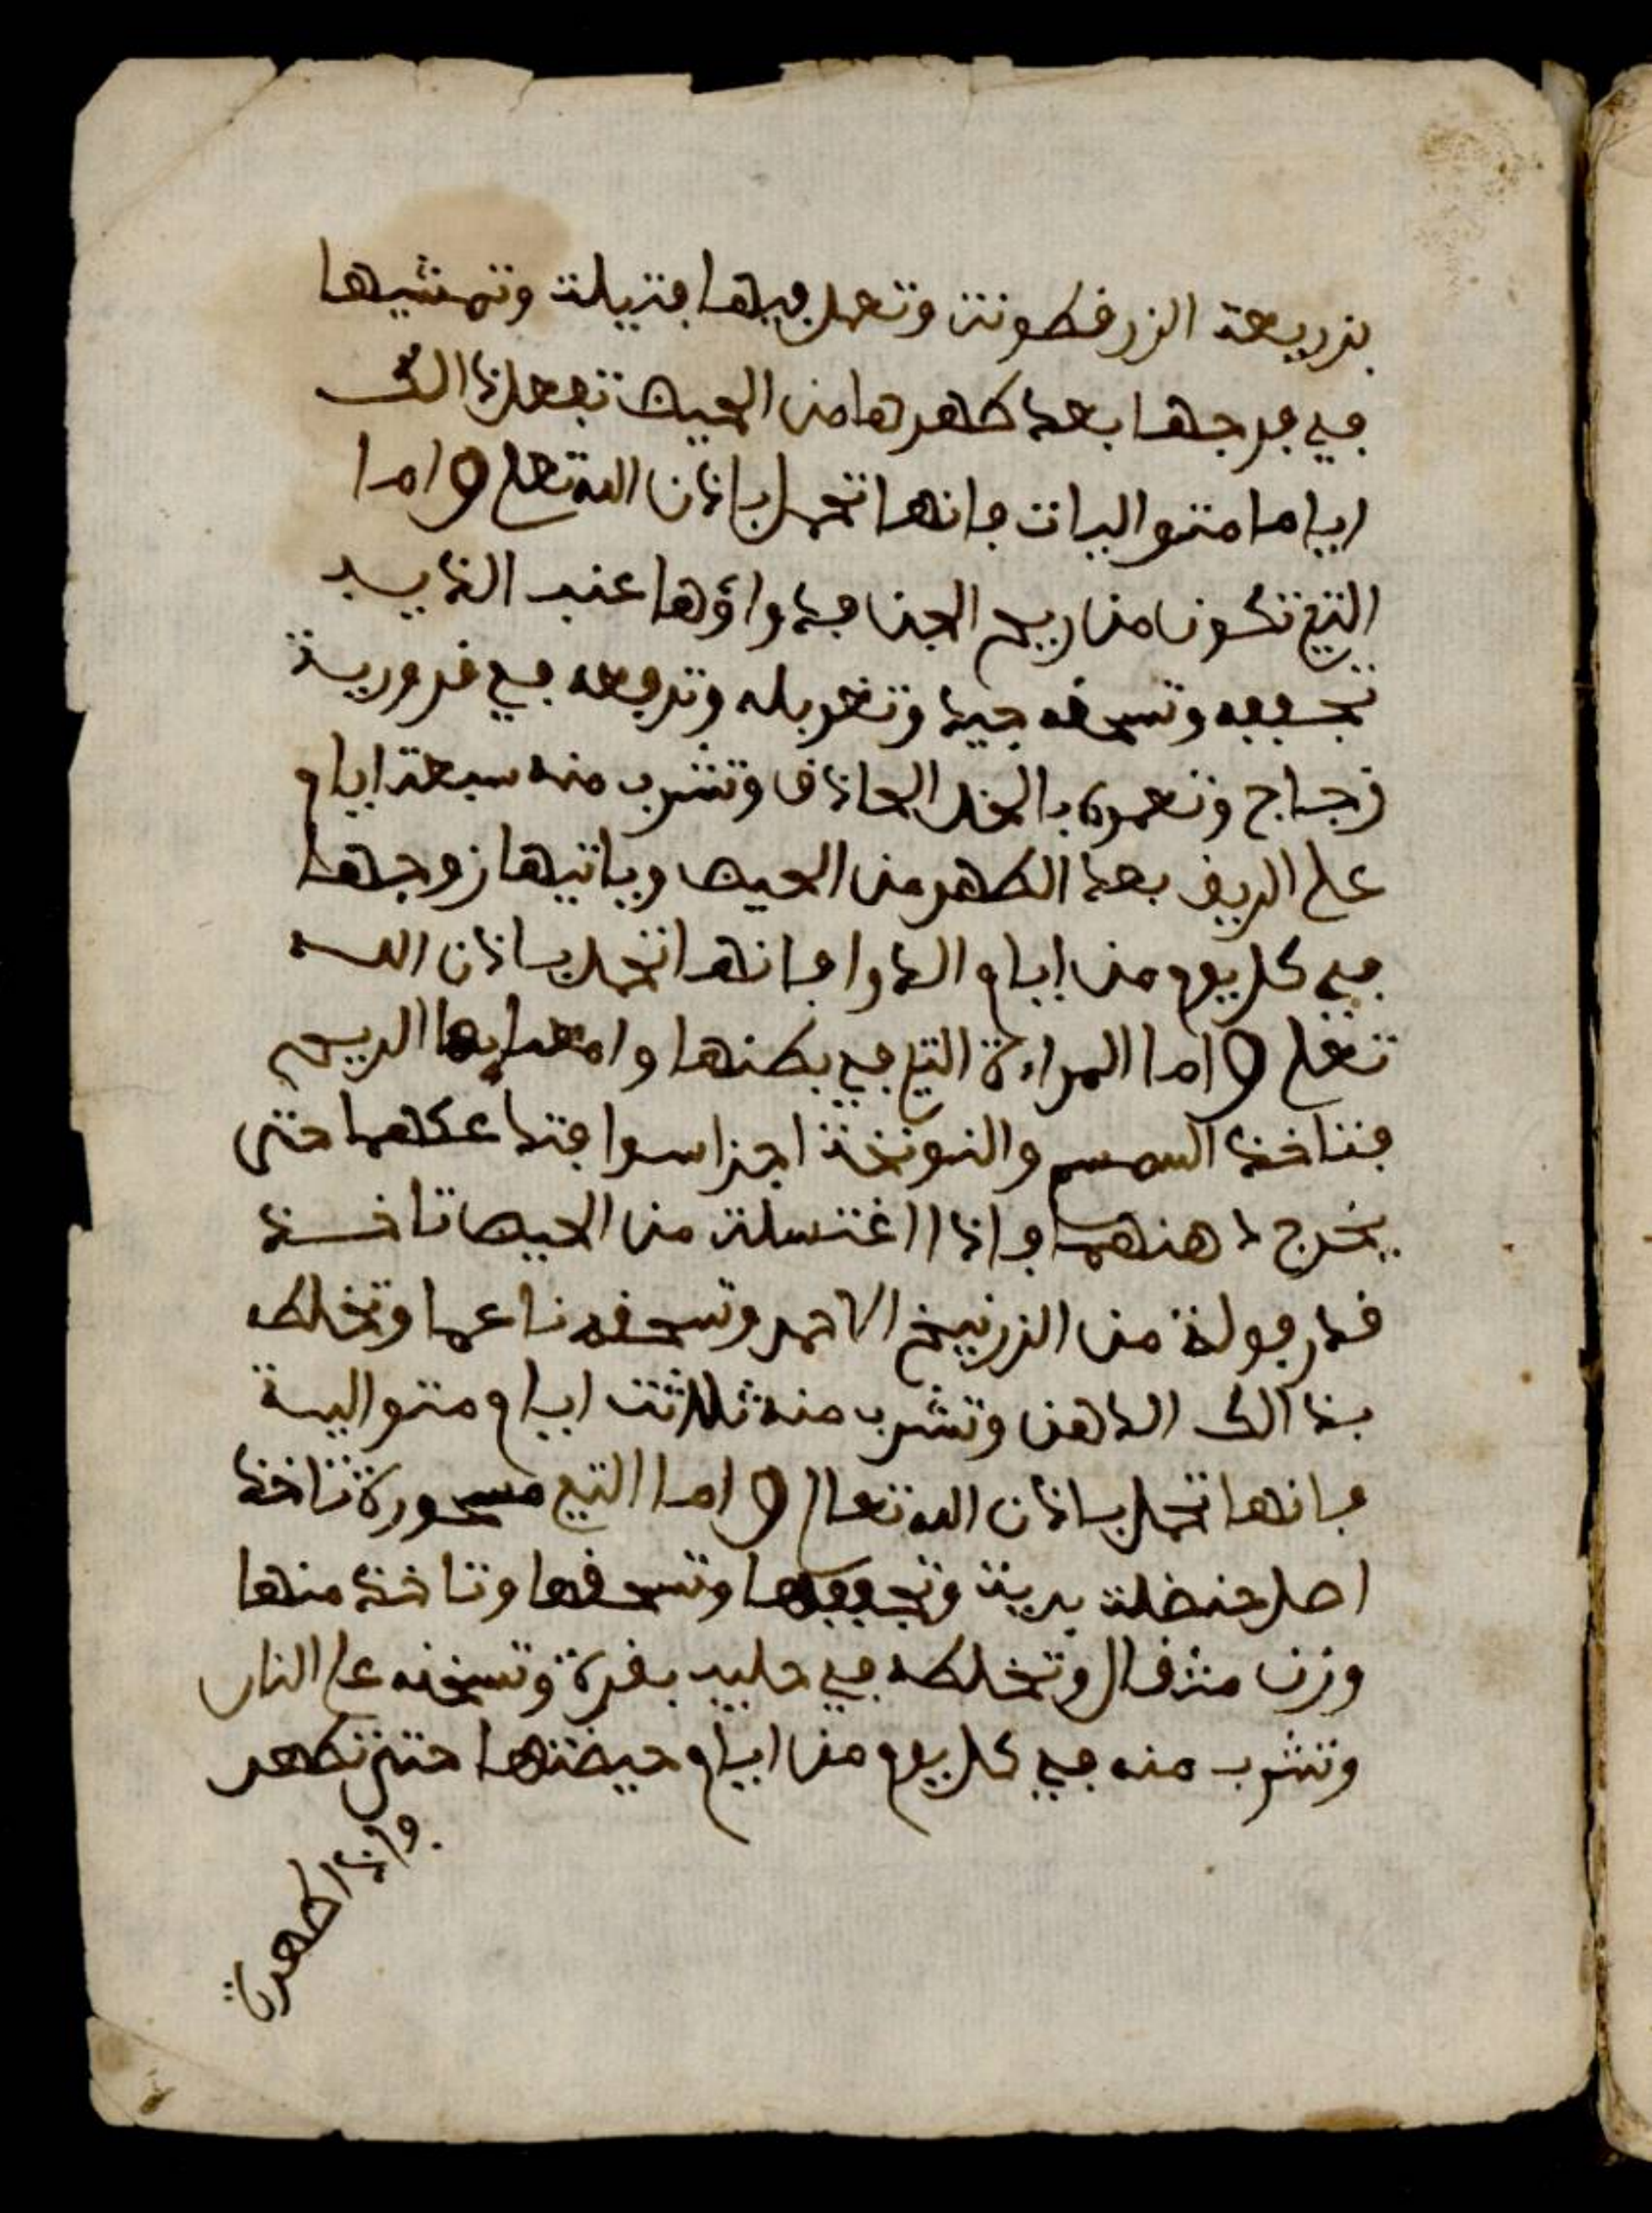 بزريعة الزرقطونة وتعمل فيها فتيلة وتمشيها
في فرجها بعد طهرها من الحيض تفعل ذالك
اياما متواليات فانها تحمل باذن الله تعلى واما
التي تكون من ريح الجن فدواؤها عنب الذيب
تجففه وتسحقه جيدا وتغربله وترفعه في قرورية
زجاج وتعمره بالخل الحاذق وتشرب منه سبعة ايام
على الريق بعد الطهر من الحيض وياتيها زوجها
في كل يوم من ايام الدوا فانها تحمل باذن الله
تعلى واما المراة التي في بطنها وامعايها الريح
فتاخذ السمسم والنونخة اجزا سوا فتدعكهما حتى
يخرج دهنهما واذا اغتسلت من الحيض تاخذ
قدر فولة من الزرنيخ الاحمر وتسحقه ناعما وتخلطه
بذالك الدهن وتشرب منه ثلاثة ايام متوالية
فانها تحمل باذن الله تعالا واما التي مسحورة تاخذ
اصل حنضلة برية وتجففها وتسحقها وتاخذ منها
وزن مثقال وتخلطه في حليب بقرة وتسخنه على النار
وتشرب منه في كل يوم من ايام حيضتها حتى تطهر
واذا طهرت